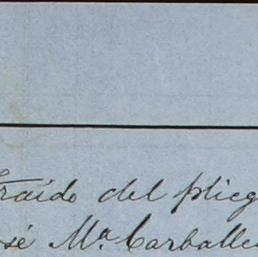 traído del plieg
sé Mª Carballe